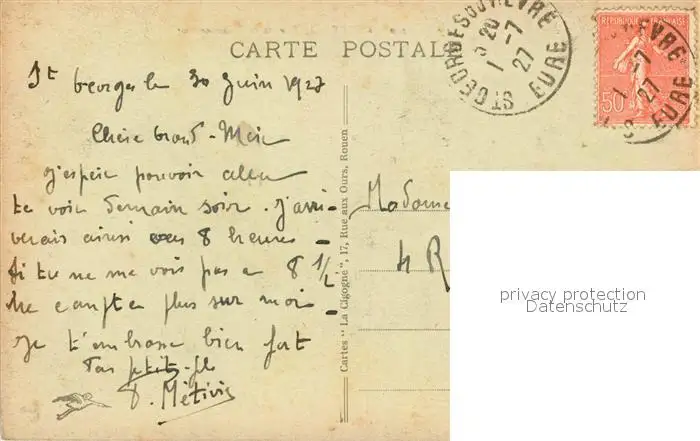 CARTE POSTALE
St Georges le 30 Juin 1927
Chère Grand-Mère
j'espère pouvoir aller
te voir demain soir. J'arri-
verais ainsi vers 8 heures.
Si tu ne me vois pas a 8 1/2
ne compte plus sur moi.
Je t'embrasse bien fort
Ton petit-fils
Cartes "La Cigogne", 17, Rue aux Ours, Rouen
Madame
4 R
ST GEORGES DU VIEVRE
EURE
1 -7
27
REPUBLIQUE FRANÇAISE
50
privacy protection
Datenschutz